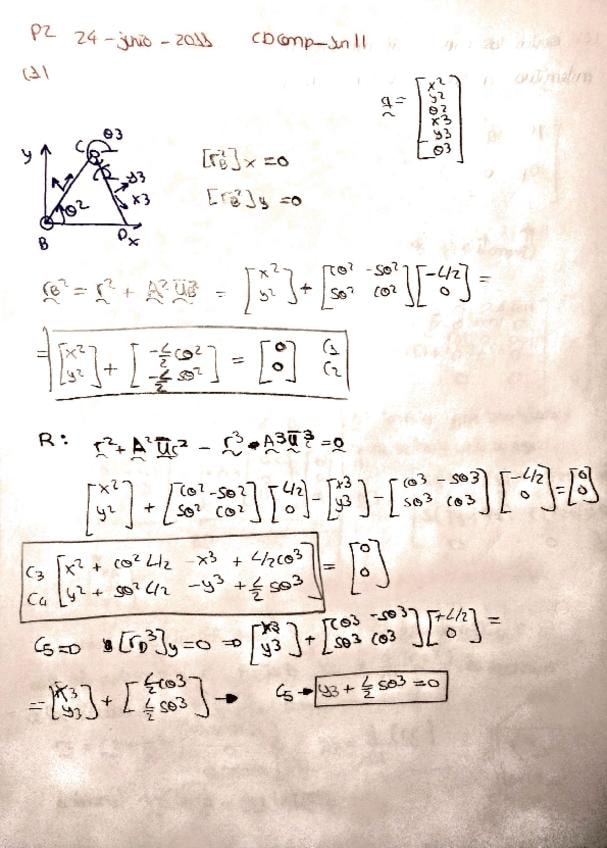 P2 24-junio-2011 CDComp-Jn11
(1)
q = [x² y² θ2 x3 y3 θ3]
θ3
C
y
y3
x3
θ2
B
D x
[r²_B]x = 0
[r²_B]y = 0
r_B² = r² + A² ū_B² = [x² y²] + [cθ² -sθ² sθ² cθ²][-L/2 0] =
= [x² y²] + [-L/2 cθ² -L/2 sθ²] = [0 0] C1 C2
R: r² + A² ū_c² - r³ - A³ ū_c³ = 0
[x² y²] + [cθ² -sθ² sθ² cθ²][L/2 0] - [x3 y3] - [cθ3 -sθ3 sθ3 cθ3][-L/2 0] = [0 0]
C3 C4 [x² + cθ² L/2 -x3 + L/2 cθ3 y² + sθ² L/2 -y3 + L/2 sθ3] = [0 0]
C5=0 [r_D³]y = 0 ⇒ [x3 y3] + [cθ3 -sθ3 sθ3 cθ3][+L/2 0] =
= [x3 y3] + [L/2 cθ3 L/2 sθ3] → C5 → y3 + L/2 sθ3 = 0